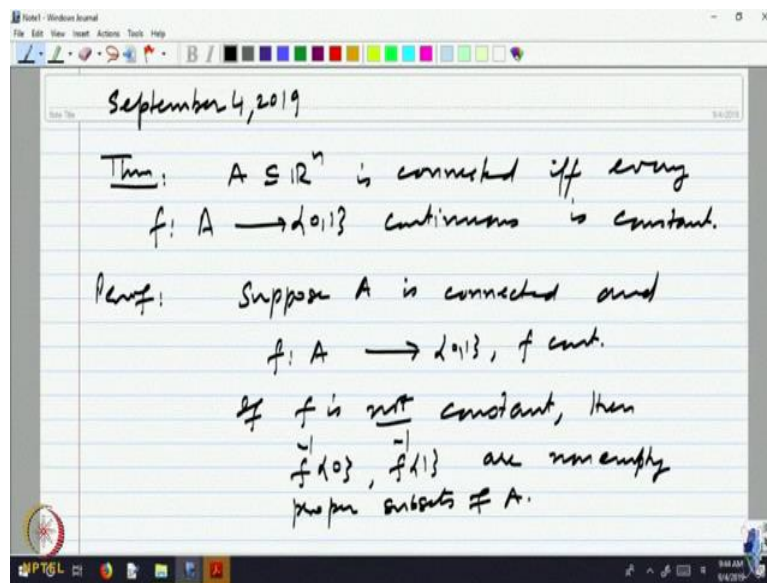 Note1 - Windows Journal
File Edit View Insert Actions Tools Help
B I
Note Title
9/4/2019
September 4, 2019
Thm: A ⊆ ℝⁿ is connected iff every
f: A → {0,1} continuous is constant.
Proof: Suppose A is connected and
f: A → {0,1}, f cont.
If f is not constant, then
f⁻¹{0}, f⁻¹{1} are nonempty
proper subsets of A.
NPTEL
9:44 AM
9/4/2019